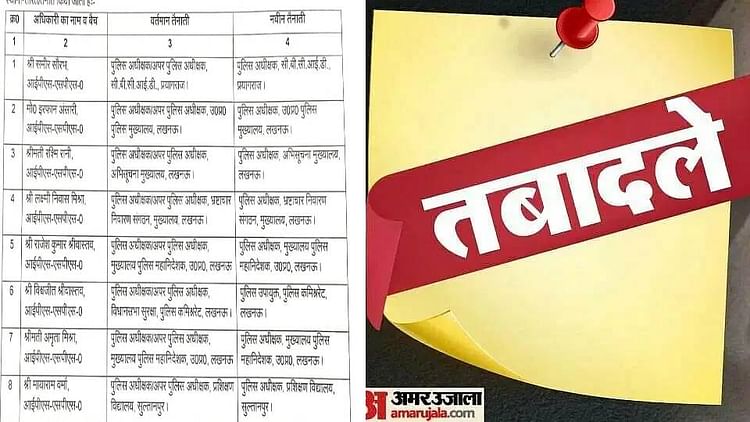 क्र0 अधिकारी का नाम व बैच वर्तमान तैनाती नवीन तैनाती
1 2 3 4
1 श्री समीर सौरभ, पुलिस अधीक्षक/अपर पुलिस अधीक्षक, पुलिस अधीक्षक,
आईपीएस-एसपीएस-0 सी.बी.सी.आई.डी., प्रयागराज। सी.बी.सी.आई.डी., प्रयागराज।
2 मो0 इरफान अंसारी, पुलिस अधीक्षक/अपर पुलिस अधीक्षक, उ0प्र0 पुलिस अधीक्षक, उ0प्र0 पुलिस
आईपीएस-एसपीएस-0 पुलिस मुख्यालय, लखनऊ। मुख्यालय, लखनऊ।
3 श्रीमती रश्मि रानी, पुलिस अधीक्षक/अपर पुलिस अधीक्षक, पुलिस अधीक्षक, अभिसूचना मुख्यालय,
आईपीएस-एसपीएस-0 अभिसूचना मुख्यालय, लखनऊ। लखनऊ।
4 श्री लक्ष्मी निवास मिश्रा, पुलिस अधीक्षक/अपर पुलिस अधीक्षक, भ्रष्टाचार पुलिस अधीक्षक, भ्रष्टाचार निवारण
आईपीएस-एसपीएस-0 निवारण संगठन, मुख्यालय, लखनऊ। संगठन, मुख्यालय, लखनऊ।
5 श्री राजेश कुमार श्रीवास्तव, पुलिस अधीक्षक/अपर पुलिस अधीक्षक, पुलिस अधीक्षक, मुख्यालय पुलिस
आईपीएस-एसपीएस-0 मुख्यालय पुलिस महानिदेशक, उ0प्र0, लखनऊ महानिदेशक, उ0प्र0, लखनऊ।
6 श्री विश्वजीत श्रीवास्तव, पुलिस अधीक्षक/अपर पुलिस अधीक्षक, पुलिस उपायुक्त, पुलिस कमिश्नरेट,
आईपीएस-एसपीएस-0 विधानसभा सुरक्षा, पुलिस कमिश्नरेट, लखनऊ। लखनऊ।
7 श्रीमती अमृता मिश्रा, पुलिस अधीक्षक/अपर पुलिस अधीक्षक, पुलिस अधीक्षक, मुख्यालय पुलिस
आईपीएस-एसपीएस-0 मुख्यालय पुलिस महानिदेशक, उ0प्र0, लखनऊ महानिदेशक, उ0प्र0, लखनऊ।
8 श्री मायाराम वर्मा, पुलिस अधीक्षक/अपर पुलिस अधीक्षक, प्रशिक्षण पुलिस अधीक्षक, प्रशिक्षण विद्यालय,
आईपीएस-एसपीएस-0 विद्यालय, सुल्तानपुर। सुल्तानपुर।
तबादले
अमर उजाला
amarujala.com